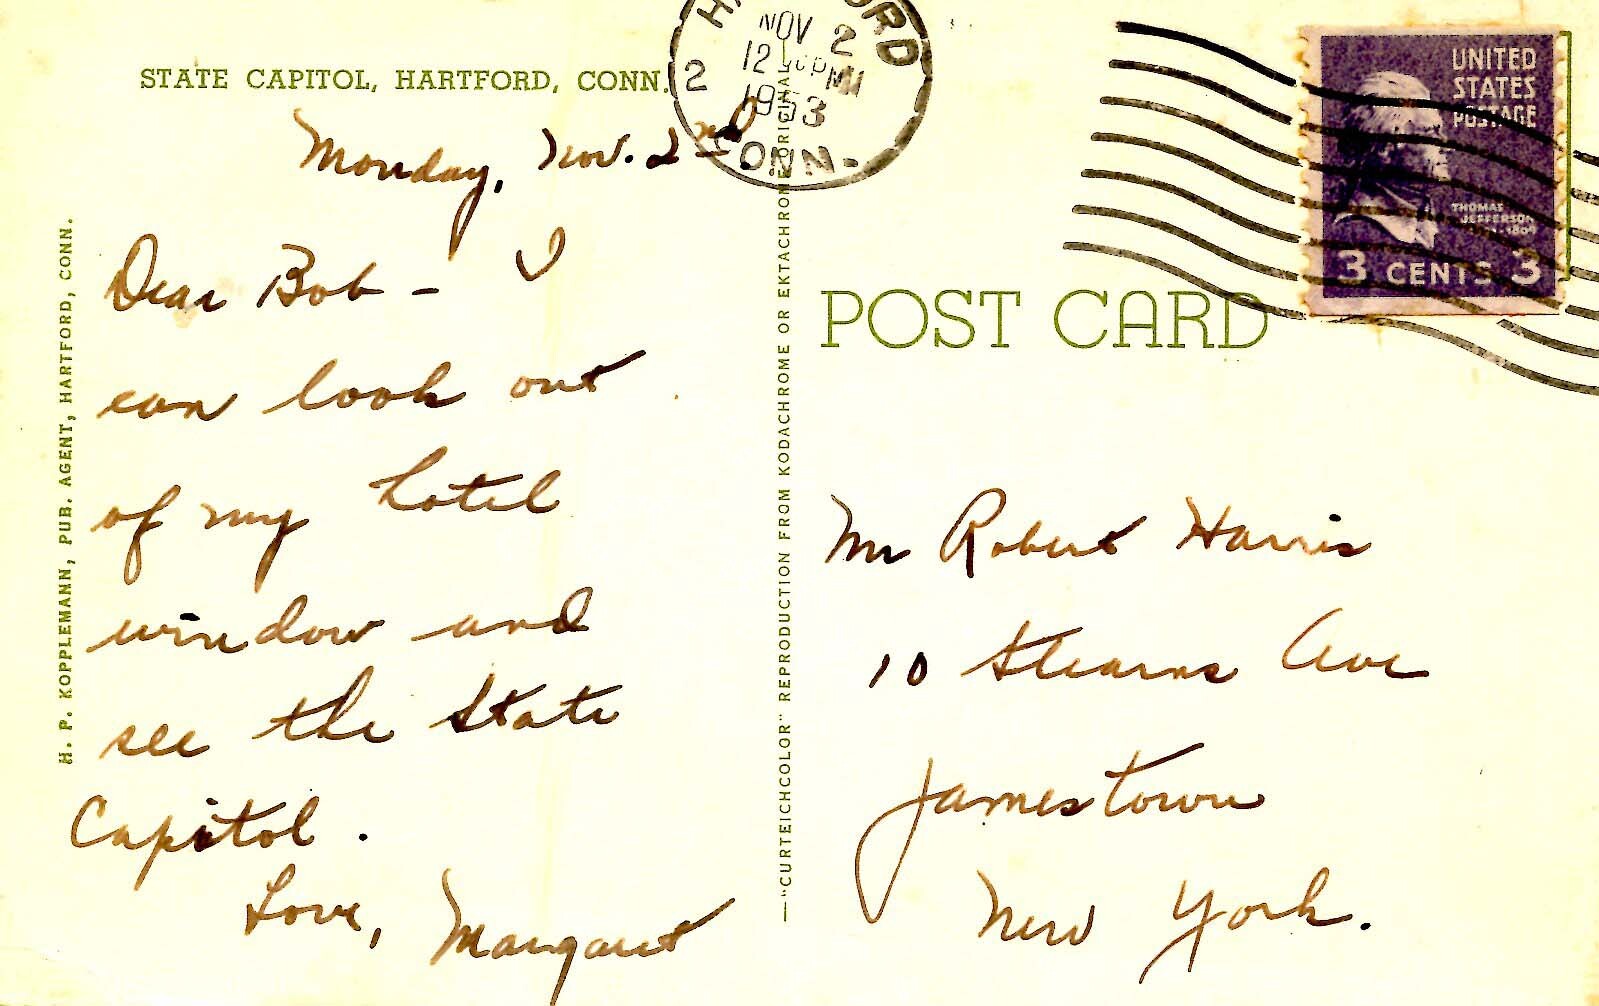 STATE CAPITOL, HARTFORD, CONN.
Monday, Nov. 2nd
Dear Bob - I
can look out
of my hotel
window and
see the State
Capitol.
Love, Margaret
H. P. KOPPLEMANN, PUB. AGENT, HARTFORD, CONN.
—"CURTEICHCOLOR" REPRODUCTION FROM KODACHROME OR EKTACHROME ORIGINAL
NOV 2
12 PM
2
1953
CONN.
UNITED
STATES
POSTAGE
THOMAS
JEFFERSON
3 CENTS 3
POST CARD
Mr Robert Harris
10 Stearns Ave
Jamestown
New York.